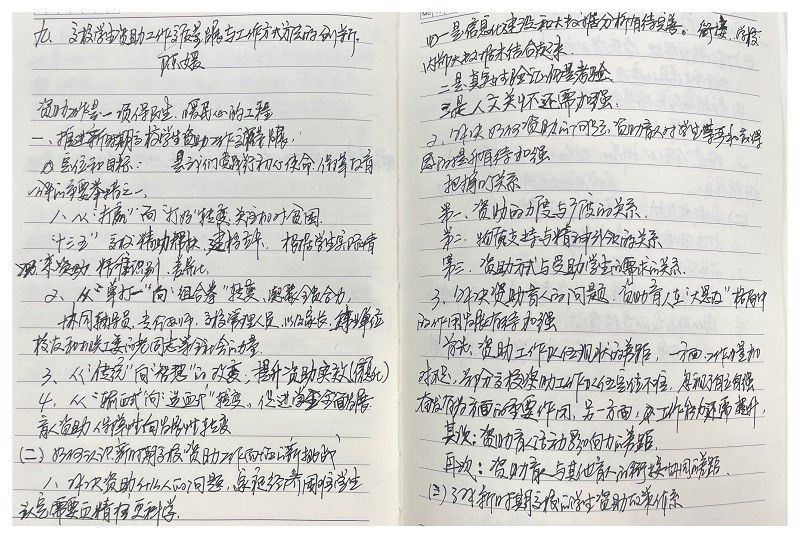 九、高校学生资助工作发展与工作方式方法的创新
陈媛
资助工作是一项保民生、暖民心的工程
一、推进新时期高校学生资助工作发展
定位和目标: 是我们要践行初心使命、保障教育
的重要举措之一。
1、从"打赢"向"打好"转变,关注相对贫困
"十三五" 高校精助帮扶,建档立卡 根据学生实际情
况来资助 精准识别,差异化
2、从"单打一"向"组合拳"转变,凝聚全员合力,
协同辅导员、专任教师、高校管理人员,以及家长、
校友和关工委的老同志等
3、从"传统"向"智慧"的改变,提升资助实效(信息化)
4、从"漏面式"向"递进式"转变,促进学生全面发展
育人资助 保障性向发展性转变
(二)如何认识新时期高校资助工作面临的新挑战
1、解决资助什么人的问题,家庭经济困难学生
认定需要更精确更科学
一是信息化建设和大数据分析有待完善。衔接,高校
内部大数据未结合起来
二是真实性验证仍是考验
三是人文关怀还需加强
2、解决如何资助的问题,资助育人对学生
的提升有待加强
把握的关系
第一、资助的力度与广度的关系
第二、物质支持与精神的关系
第三、资助方式与受助学生的需求的关系
3、解决资助育人的问题,资助育人在"大思政"格局中
的作用发挥有待加强
首先,资助工作队伍现状的差距,一方面,工作量加
部分高校资助工作队伍定位不准,
方面的重要作用,另一方面,工作合力还需提升,
其次:资助育人活动影响力的差距
再次:资助育人与其他育人的衔接协同的差距
(三)新时期高校的学生资助工作体系